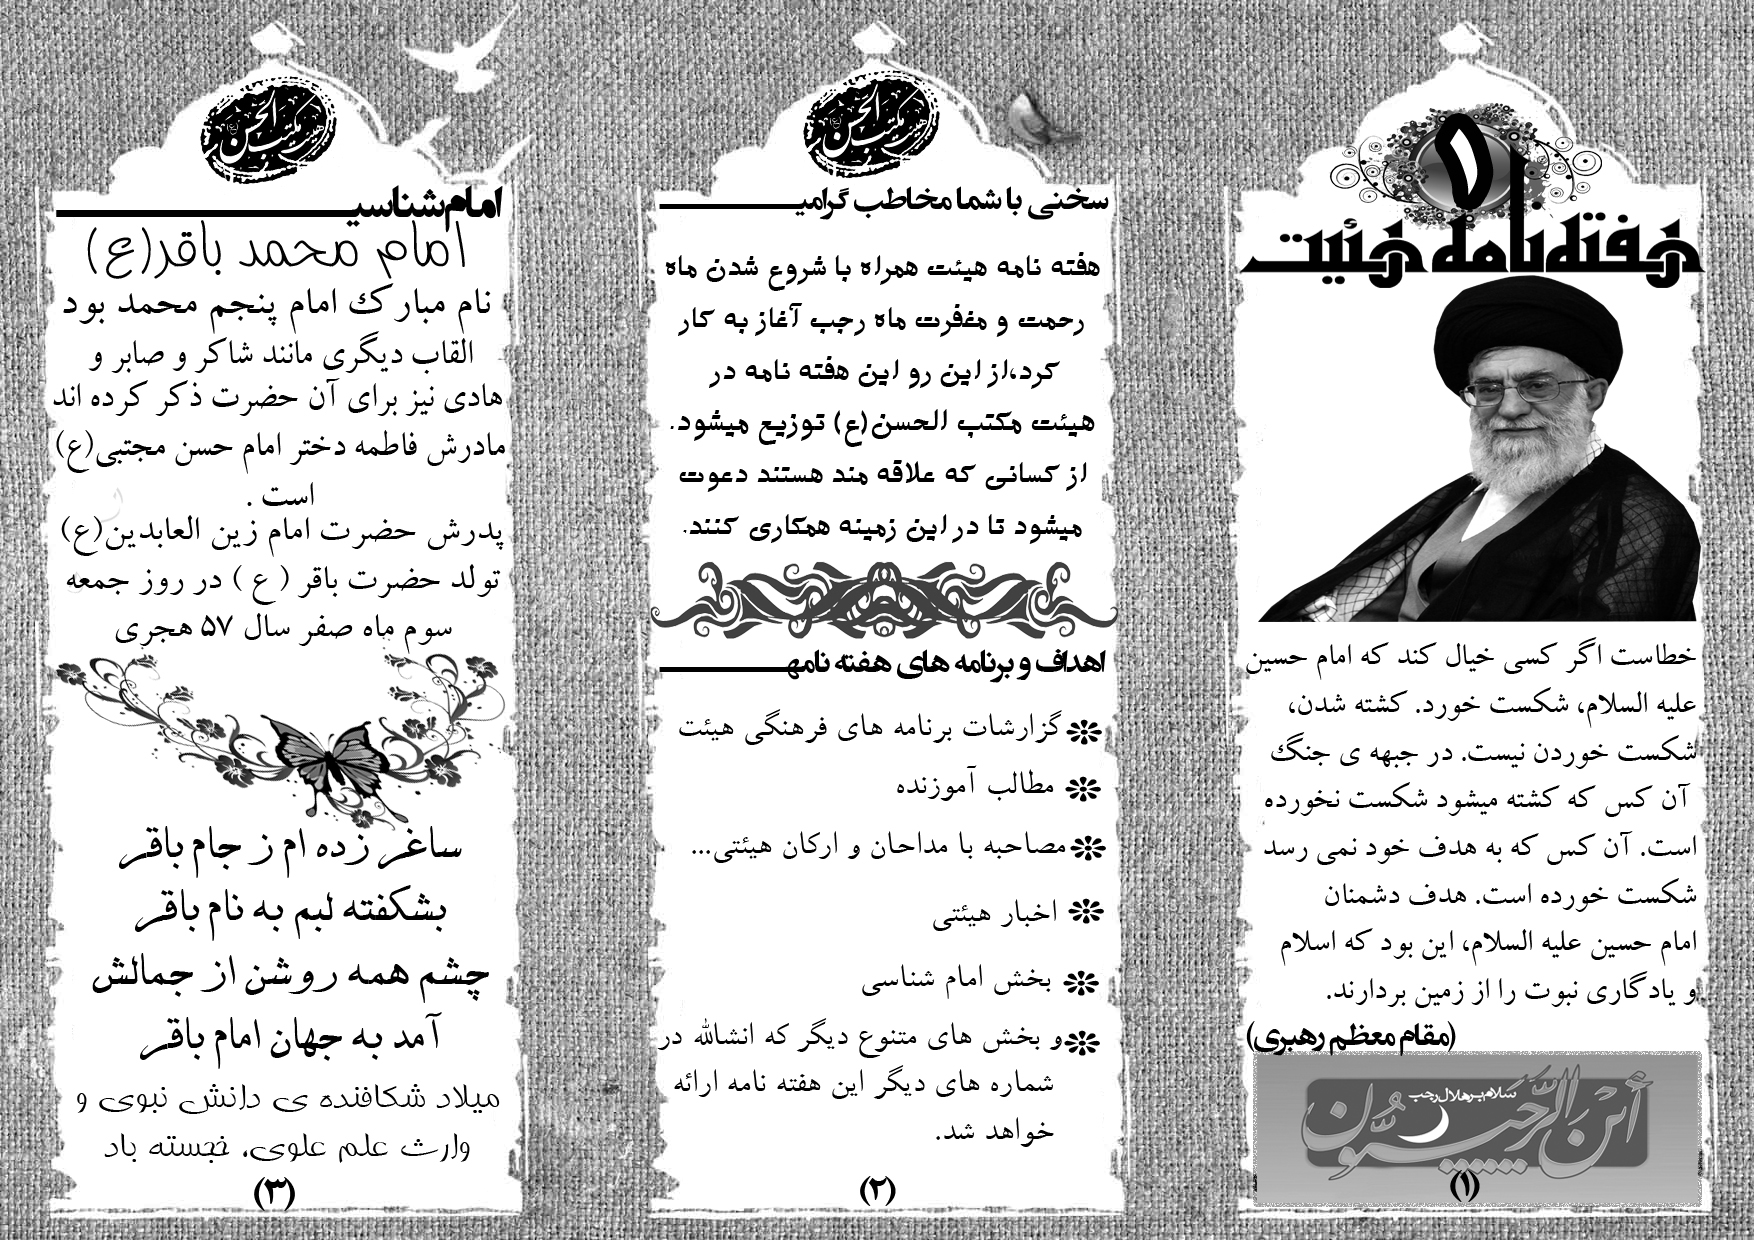 ۱
هفته نامه هیئت
خطاست اگر کسی خیال کند که امام حسین
علیه السلام، شکست خورد. کشته شدن،
شکست خوردن نیست. در جبهه ی جنگ
آن کس که کشته میشود شکست نخورده
است. آن کس که به هدف خود نمی رسد
شکست خورده است. هدف دشمنان
امام حسین علیه السلام، این بود که اسلام
و یادگاری نبوت را از زمین بردارند.
(مقام معظم رهبری)
سلام بر هلال رجب
أین الرجبیون
(۱)
هیئت مکتب الحسن (ع)
سخنی با شما مخاطب گرامی
هفته نامه هیئت همراه با شروع شدن ماه
رحمت و مغفرت ماه رجب آغاز به کار
کرد،از این رو این هفته نامه در
هیئت مکتب الحسن(ع) توزیع میشود.
از کسانی که علاقه مند هستند دعوت
میشود تا در این زمینه همکاری کنند.
اهداف و برنامه های هفته نامه
گزارشات برنامه های فرهنگی هیئت
مطالب آموزنده
مصاحبه با مداحان و ارکان هیئتی...
اخبار هیئتی
بخش امام شناسی
و بخش های متنوع دیگر که انشالله در
شماره های دیگر این هفته نامه ارائه
خواهد شد.
(۲)
هیئت مکتب الحسن (ع)
امام شناسی
امام محمد باقر(ع)
نام مبارک امام پنجم محمد بود
القاب دیگری مانند شاکر و صابر و
هادی نیز برای آن حضرت ذکر کرده اند
مادرش فاطمه دختر امام حسن مجتبی(ع)
است .
پدرش حضرت امام زین العابدین(ع)
تولد حضرت باقر ( ع ) در روز جمعه
سوم ماه صفر سال ۵۷ هجری
ساغر زده ام ز جام باقر
بشکفته لبم به نام باقر
چشم همه روشن از جمالش
آمد به جهان امام باقر
میلاد شکافنده ی دانش نبوی و
وارث علم علوی، خجسته باد
(۳)